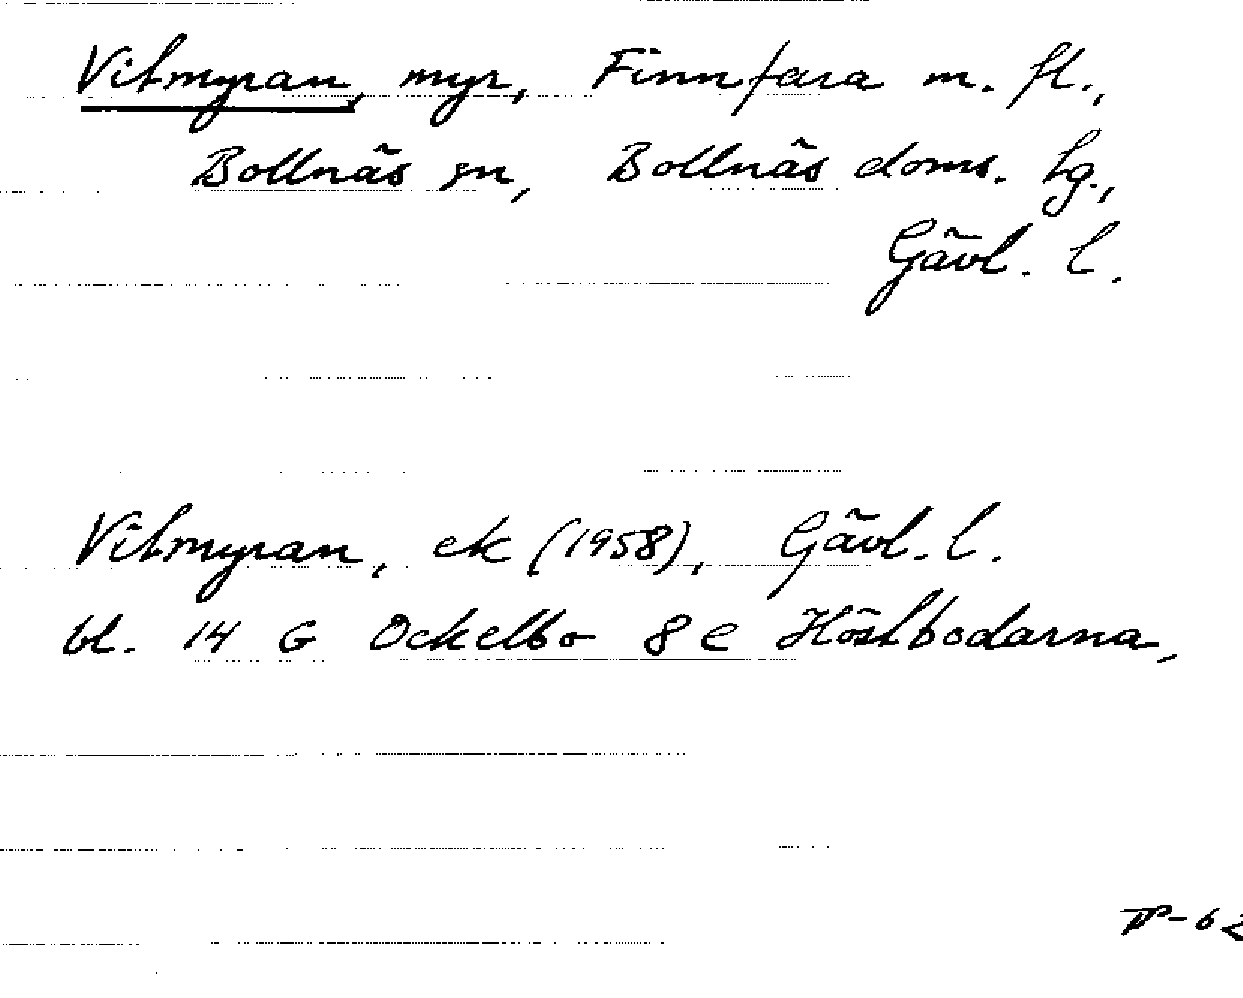 Vitmyran, myr, Finnfara m. fl.,
Bollnäs sn, Bollnäs doms. lg.,
Gävl. l.
Vitmyran, ek (1958), Gävl. l.
bl. 14 G Ockelbo 8 e Höstbodarna,